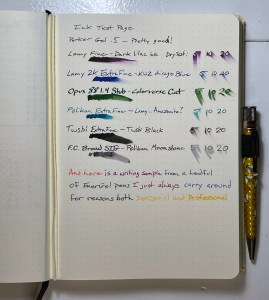 Ink Test Page
Parker Gel .5 - Pretty good!
Lamy Fine - Dark Lilac ink - Dry Test:
5 10 20
Lamy 2k Extra Fine - Blue
5 10 20
Opus 88 1.4 Stub - Colorverse Cat
5 10 20
Pelikan Extra Fine - Lamy
5 10 20
Twsbi Extra Fine - Twsbi Black
5 10 20
F.C. Broad - Pelikan Moonstone
5 10 20
And here is a writing sample from a handful
of fountain pens I just always carry around
for reasons both personal and Professional